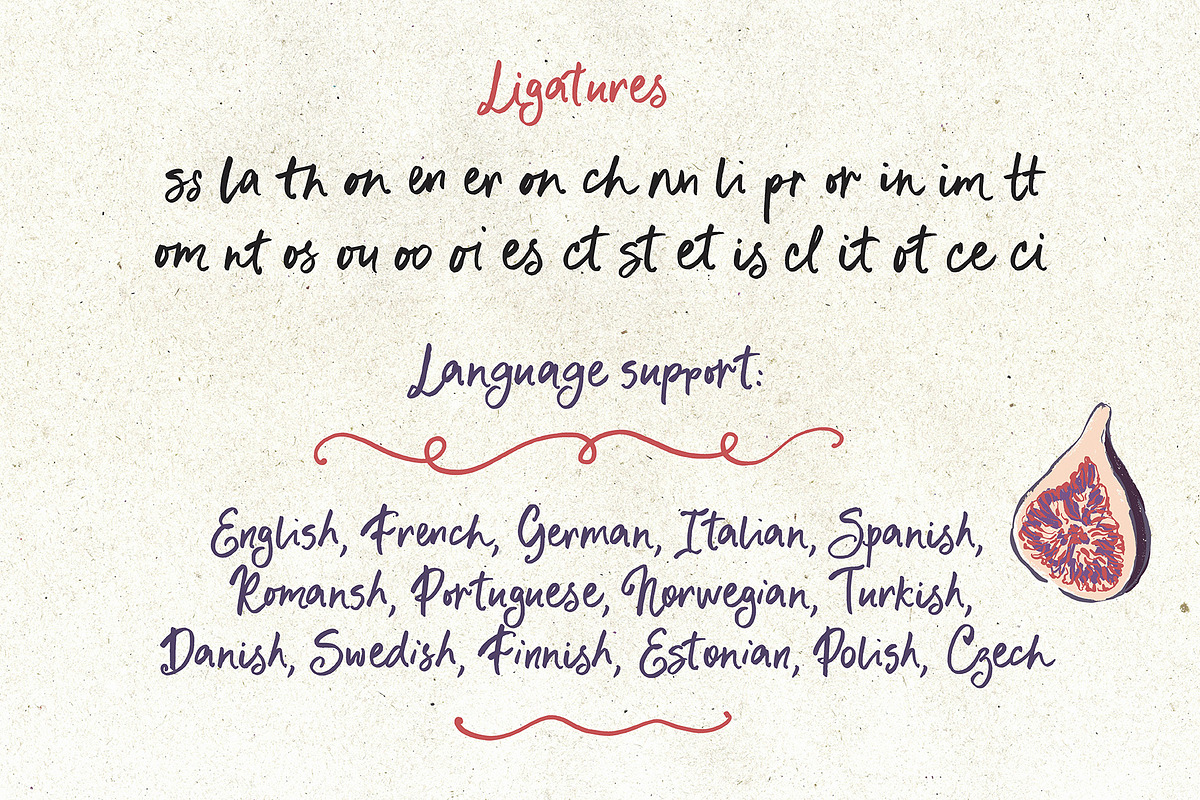 Ligatures
ss la th on en er on ch nn li pr or in im tt
om nt os ou oo oi es ct st et is cl it ot ce ci
Language support:
English, French, German, Italian, Spanish,
Romansh, Portuguese, Norwegian, Turkish,
Danish, Swedish, Finnish, Estonian, Polish, Czech